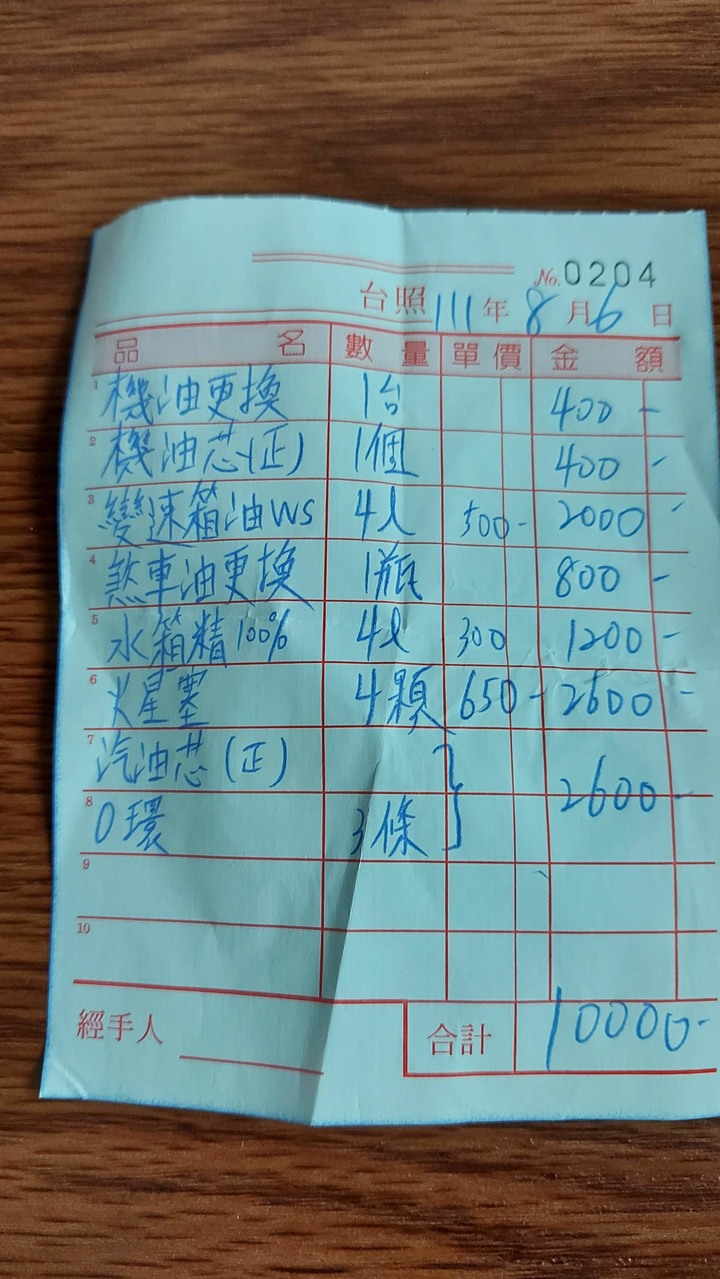 No.0204
台照 111 年 8 月 6 日
品 名 數 量 單 價 金 額
1 機油更換 1台 400-
2 機油芯(正) 1個 400-
3 變速箱油WS 4l 500- 2000-
4 煞車油更換 1瓶 800-
5 水箱精100% 4l 300 1200-
6 火星塞 4顆 650- 2600-
7 汽油芯(正)
8 O環 3條 } 2600-
9
10
經手人 合計 10000-